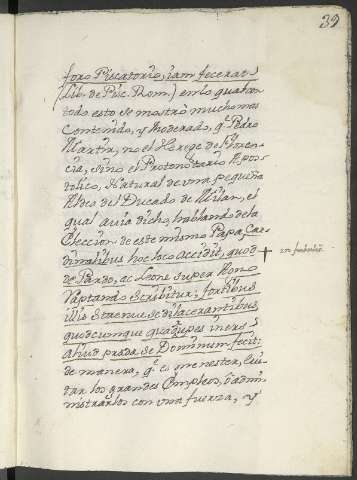 39
foro Piscatorio, iam fecerat
(lib. de Pisc. Rom.) en lo qual con
todo esto se mostró mucho mas
Contenido, y Moderado, q.e Pedro
Martir, no el Herege de Floren-
cia, sino el Protonotario Apos-
tolico, Natural de vna pequeña
Aldea del Ducado de Milan, el
qual auia dicho, hablando de la
Eleccion de este mismo Papa, Car-
dinalibus hoc loco accidit, quod
de Pardo, ac Leone super
Raptando Scribitur, fortibus
illis Strenue se dilacerantibus
quodcumque quadrupes iners
aliud præda se Dominum fecit:
de manera, q.e es menester, Cui-
dar los grandes Empleos, ô admi-
nistrarlos con vna fuerza, y